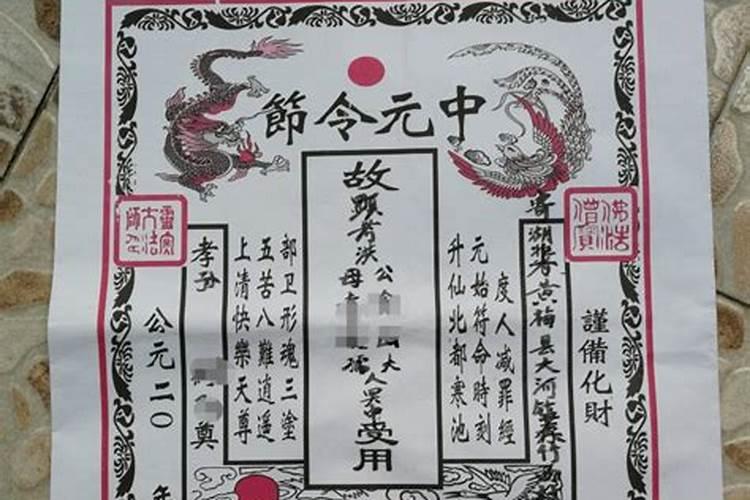 中元令節
佛法僧寶
謹備化財
寄湖 黄梅县大河镇
度人减罪經
元始符命時刻
升仙北都寒池
故顯考 公 大人
母 孺人 受用
部卫形魂三塗
五苦八難逍遥
上清快樂天尊
孝孙 奠
靈寶大法師印
公元二〇 年